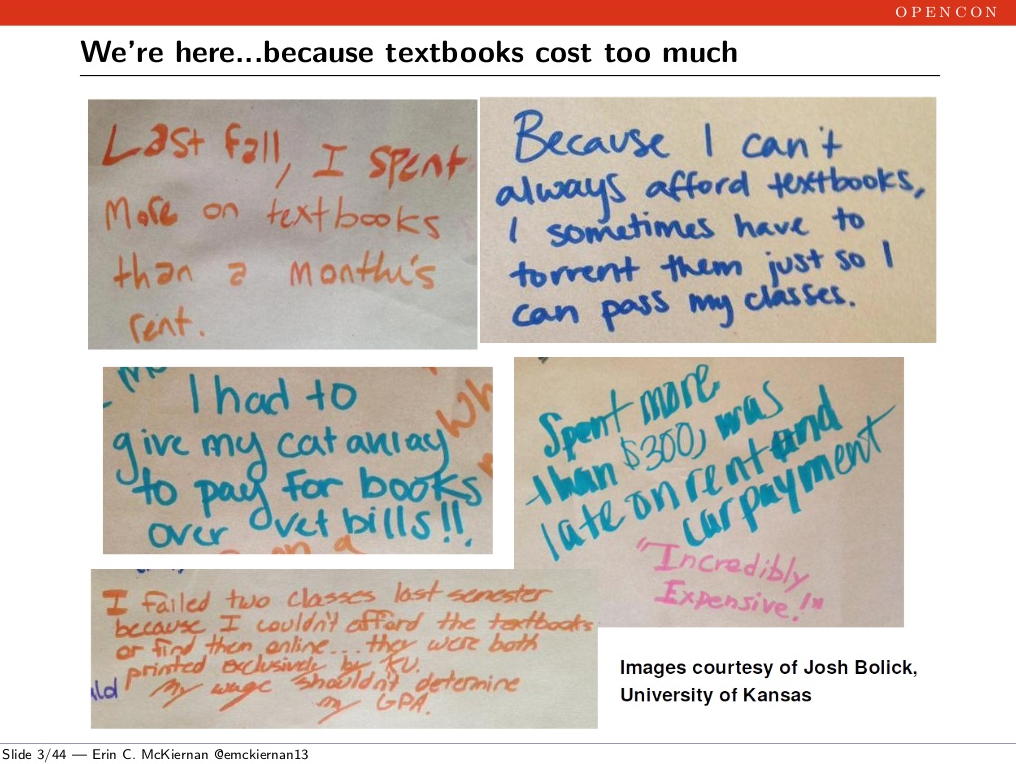 OPENCON
We're here...because textbooks cost too much
Last fall, I spent
More on textbooks
than a month's
rent.
Because I can't
always afford textbooks,
I sometimes have to
torrent them just so I
can pass my classes.
I had to
give my cat away
to pay for books
over vet bills!!
Spent more
than $300, was
late on rent and
car payment
"Incredibly
Expensive!"
I failed two classes last semester
because I couldn't afford the textbooks
or find them online... they were both
printed exclusively by KU.
My wage shouldn't determine
my GPA.
Images courtesy of Josh Bolick,
University of Kansas
Slide 3/44 — Erin C. McKiernan @emckiernan13